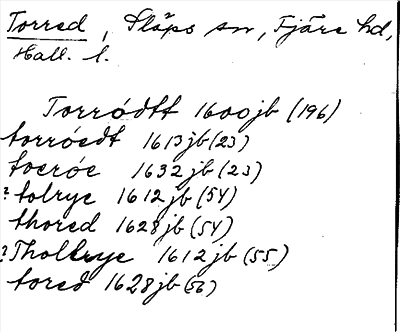 Torred, Släps sn, Fjäre hd,
Hall. l.
Torródtt 1600jb (196)
torróedt 1613jb (23)
toeróe 1632jb (23)
? tolrye 1612jb (54)
thored 1628jb (54)
? Tholtrye 1612jb (55)
tored 1628jb (56)